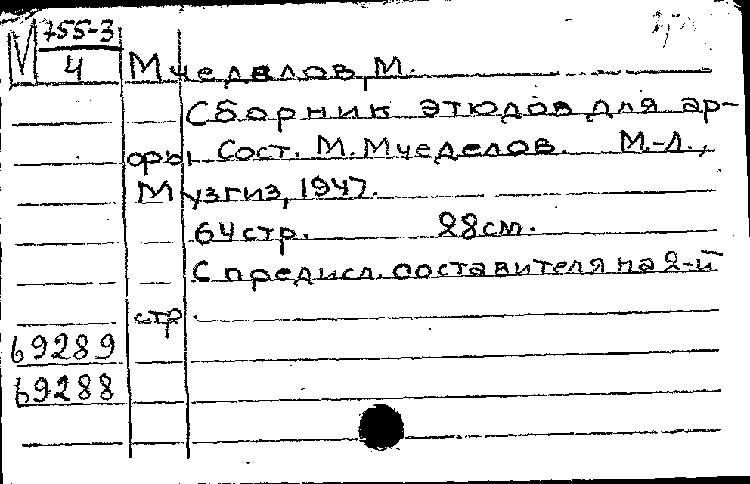 М 755-3
4
Мчеделов, М.
Сборник этюдов для ар-
фы. Сост. М. Мчеделов. М.-Л.,
Музгиз, 1947.
64 стр. 28 см.
С предисл. составителя на 2-й
стр.
69289
69288